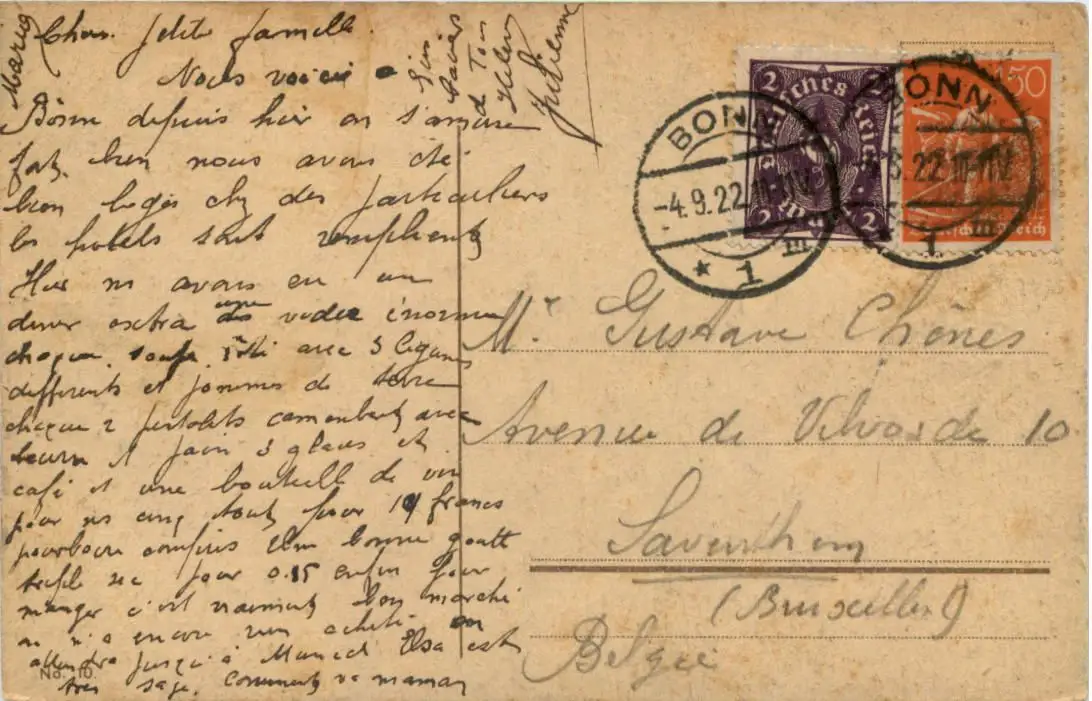 Chère petite famille.
Nous voici a
Bonn depuis hier on s'amuse
bien nous avons été
bien logés chez des particuliers
les hotels sont
Hier ns avons eu un
diner extra une énorme
chaque avec 3 légumes
differents et pommes de terre
chaque 2 pistolets camembert avec
beurre et pain 3 glaces et
café et une bouteille de vin
pour ns cinq tout pour 14 francs
pourboire compris Une bonne goutte
triple sec pour 0.15 enfin pour
manger c'est vraiment bon marché
on n'a encore rien acheté on
attendra jusqu'à Munich Elsa est
très sage. Comment va maman
Maria
Xavier
Tom
Helen
Julienne
BONN
-4.9.22 11-12V
* 1 III
BONN
22 10-11V
1 III
2 2
Deutsches Reich
2 Mark 2
150
Deutsches Reich
Mr. Gustave Chênes
Avenue de Vilvorde 10
Saventhem
(Bruxelles)
Belgie
No. 10.